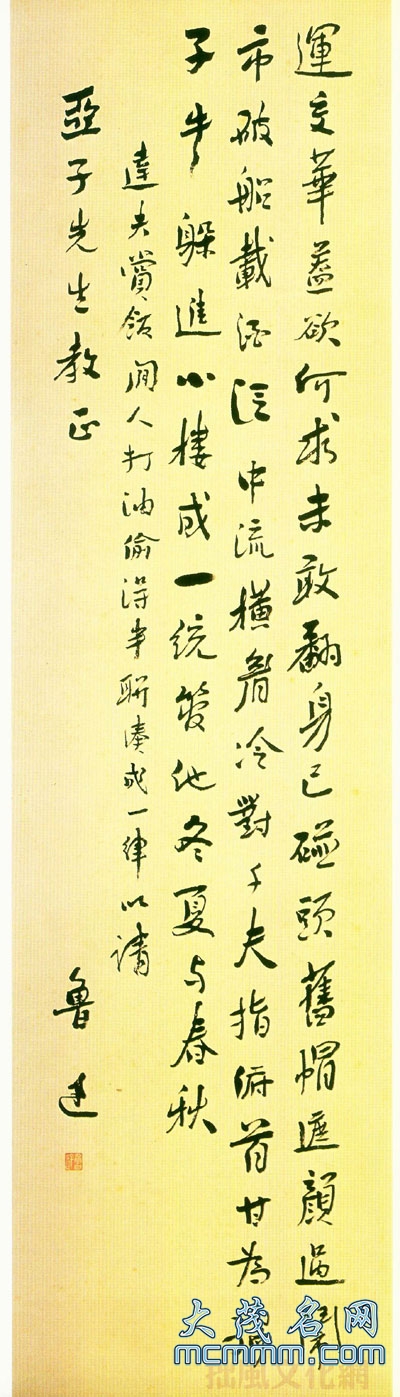 運交華蓋欲何求未敢翻身已碰頭舊帽遮顏過鬧
市破船載酒泛中流橫眉冷對千夫指俯首甘為孺
子牛躲進小樓成一統管他冬夏与春秋
達夫賞飯閒人打油偷得半聯湊成一律以請
亞子先生教正
魯迅
大茂名网
mcmmm.com
拙風文化網